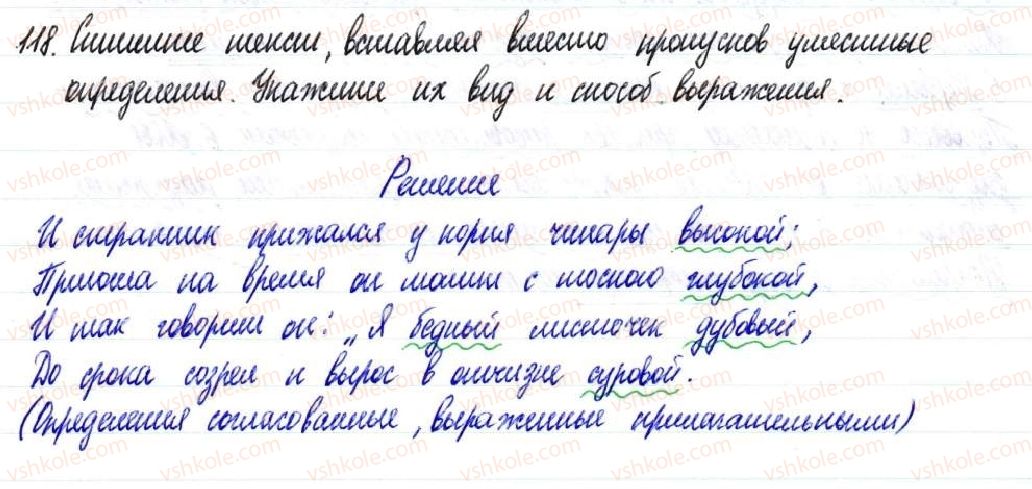 118. Спишите текст, вставляя вместо пропусков уместные
определения. Укажите их вид и способ выражения.
Решение
И странник прижался у корня чинары высокой;
Приюта на время он молит с тоскою глубокой,
И так говорит он: „Я бедный листочек дубовый,
До срока созрел и вырос в отчизне суровой.
(Определения согласованные, выраженные прилагательными)
vshkole.com